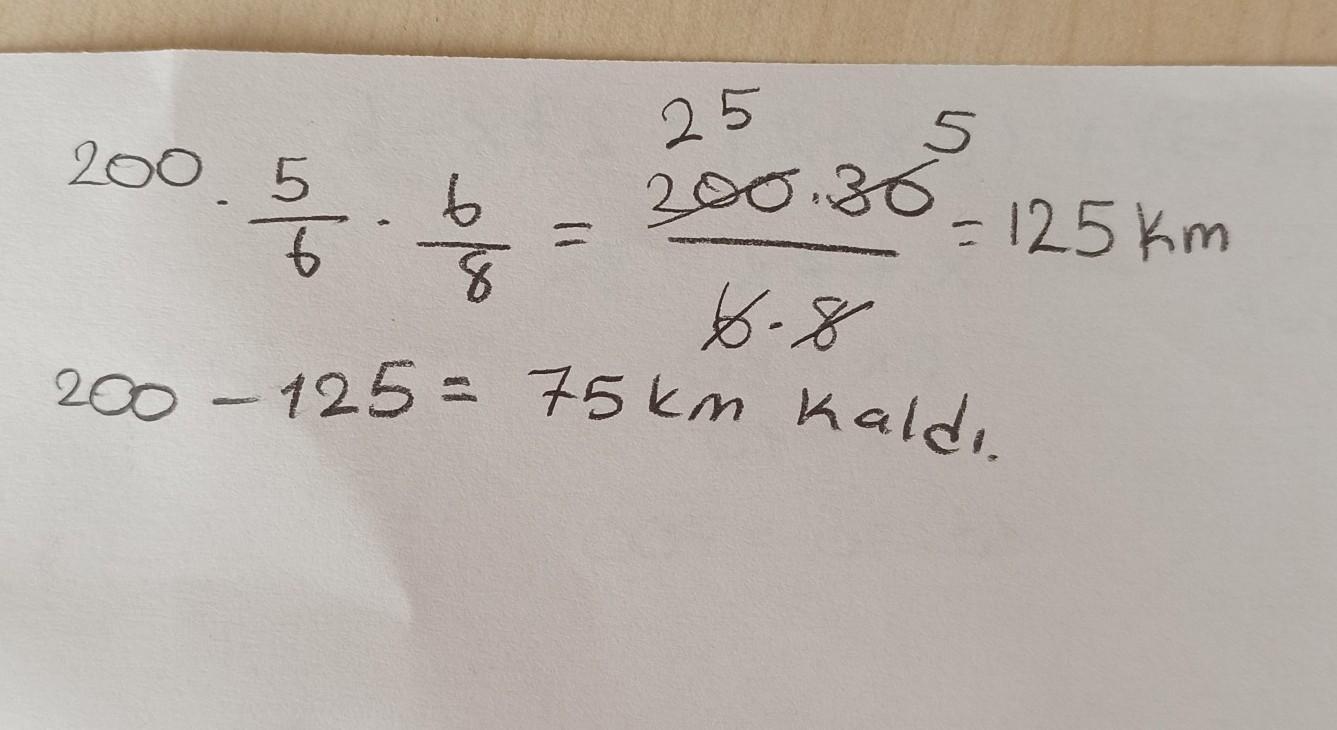 200 . 5/6 . 6/8 = 25 200.30 5 / 6.8 = 125 Km
200 - 125 = 75 km kaldı.